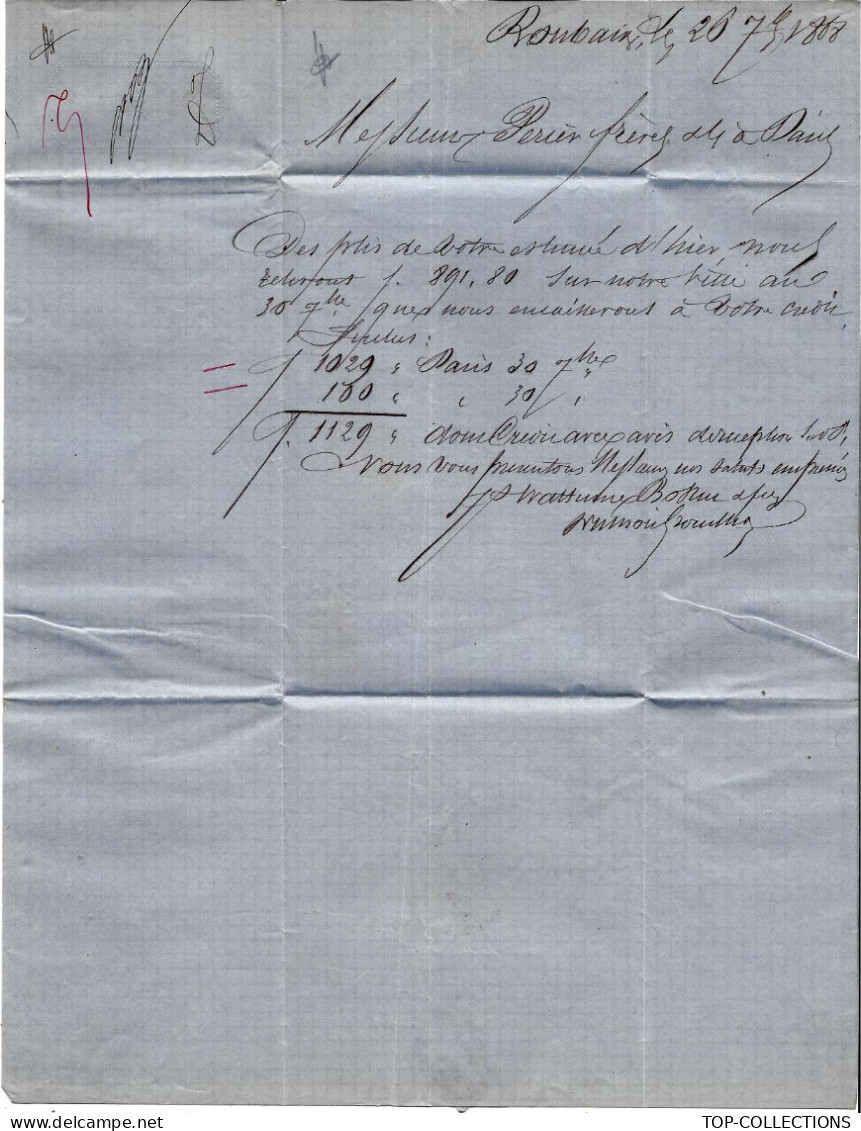 Roubaix, le 26 7bre 1868
Messieurs Perier frères & Cie à Paris
Des plis de votre estimée d'hier nous
retirons f. 891,80 sur notre ville au
30 7bre que nous encaisserons à votre crédit.
Inclus:
f 1029 " Paris 30 7bre
100 " " 30 "
f. 1129 " dont Crédit avec avis de réception S.v.P.
Nous vous présentons Messieurs nos saluts empressés
TOP-COLLECTIONS